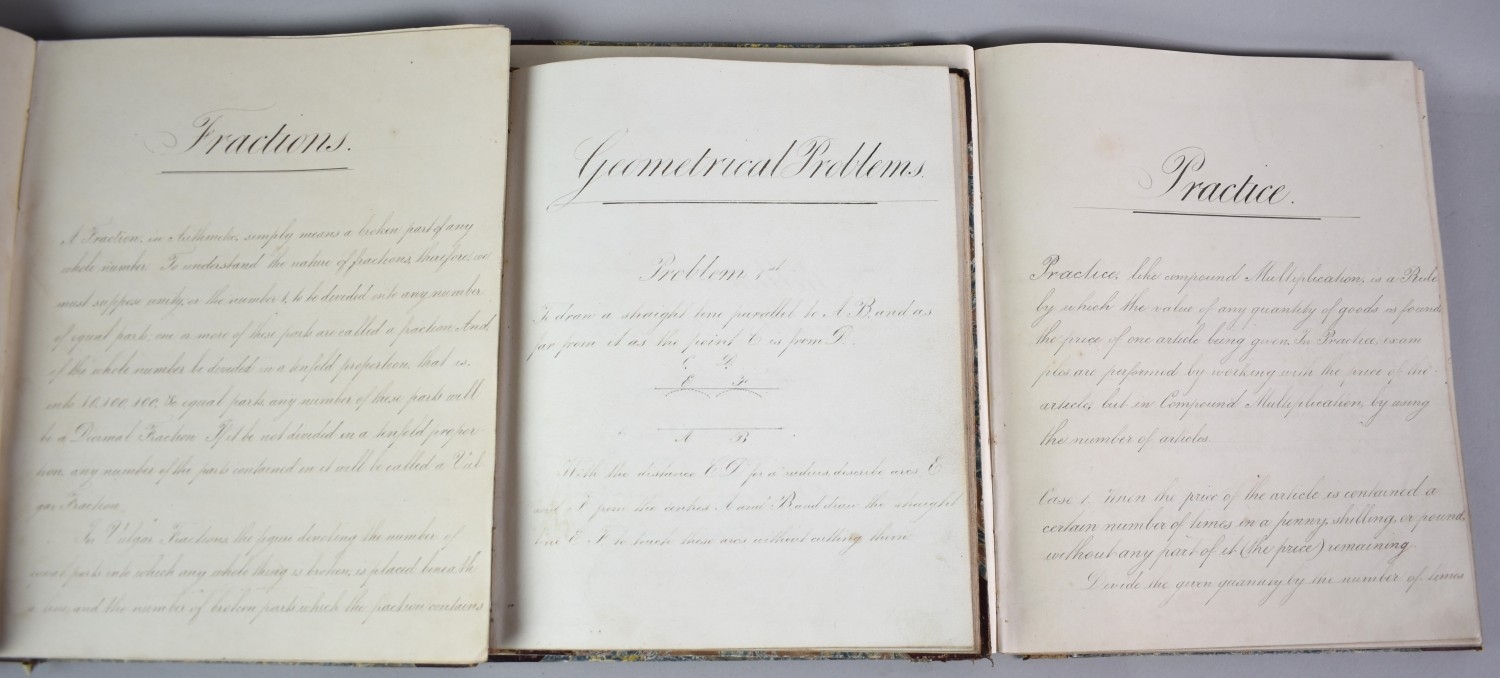 Fractions.
A Fraction, in Arithmetic, simply means a broken part of any
whole number. To understand the nature of fractions, therefore, we
must suppose unity, or the number 1, to be divided into any number
of equal parts, one or more of these parts are called a fraction. And
if the whole number be divided in a tenfold proportion, that is,
into 10, 100, &c. equal parts, any number of these parts will
be a Decimal Fraction. If it be not divided in a tenfold propor-
tion, any number of the parts contained in it will be called a Vul
gar Fraction.
In Vulgar Fractions, the figure denoting the number of
equal parts into which any whole thing is broken, is placed beneath
a line, and the number of broken parts which the fraction contains
Geometrical Problems.
Problem 1st
To draw a straight line parallel to A B, and as
far from it as the point C is from D.
C D
E F
A B
With the distance C D for a radius, describe arcs E
and F from the centres A and B, and draw the straight
line E F to touch these arcs without cutting them
Practice.
Practice, like compound Multiplication, is a Rule
by which the value of any quantity of goods is found
the price of one article being given. In Practice, exam
ples are performed by working with the price of the
article, but in Compound Multiplication, by using
the number of articles.
Case 1. When the price of the article is contained a
certain number of times in a penny, shilling, or pound,
without any part of it (the price) remaining.
Divide the given quantity by the number of times